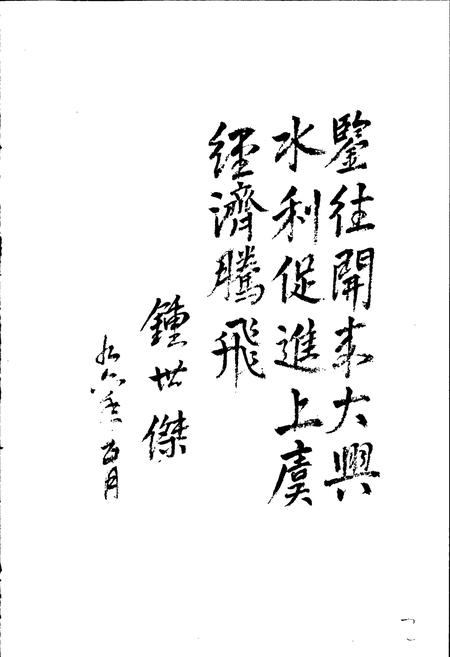 鑒往開来大興
水利促進上虞
經濟騰飛
鍾世傑
九六年五月